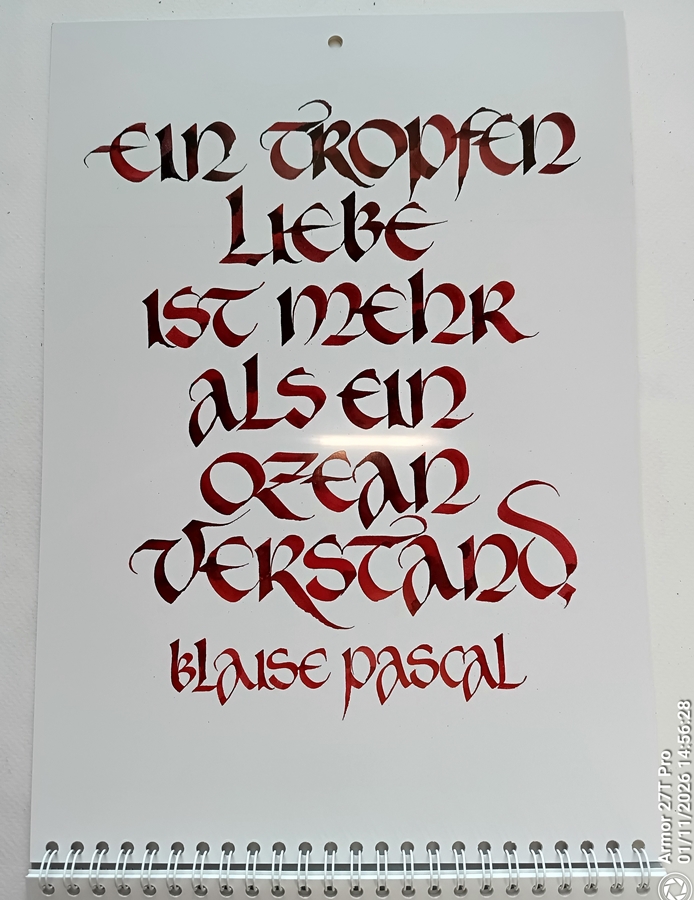 Ein Tropfen
Liebe
ist mehr
als ein
Ozean
Verstand.
Blaise Pascal
Armor 27T Pro
01/11/2026 14:56:28